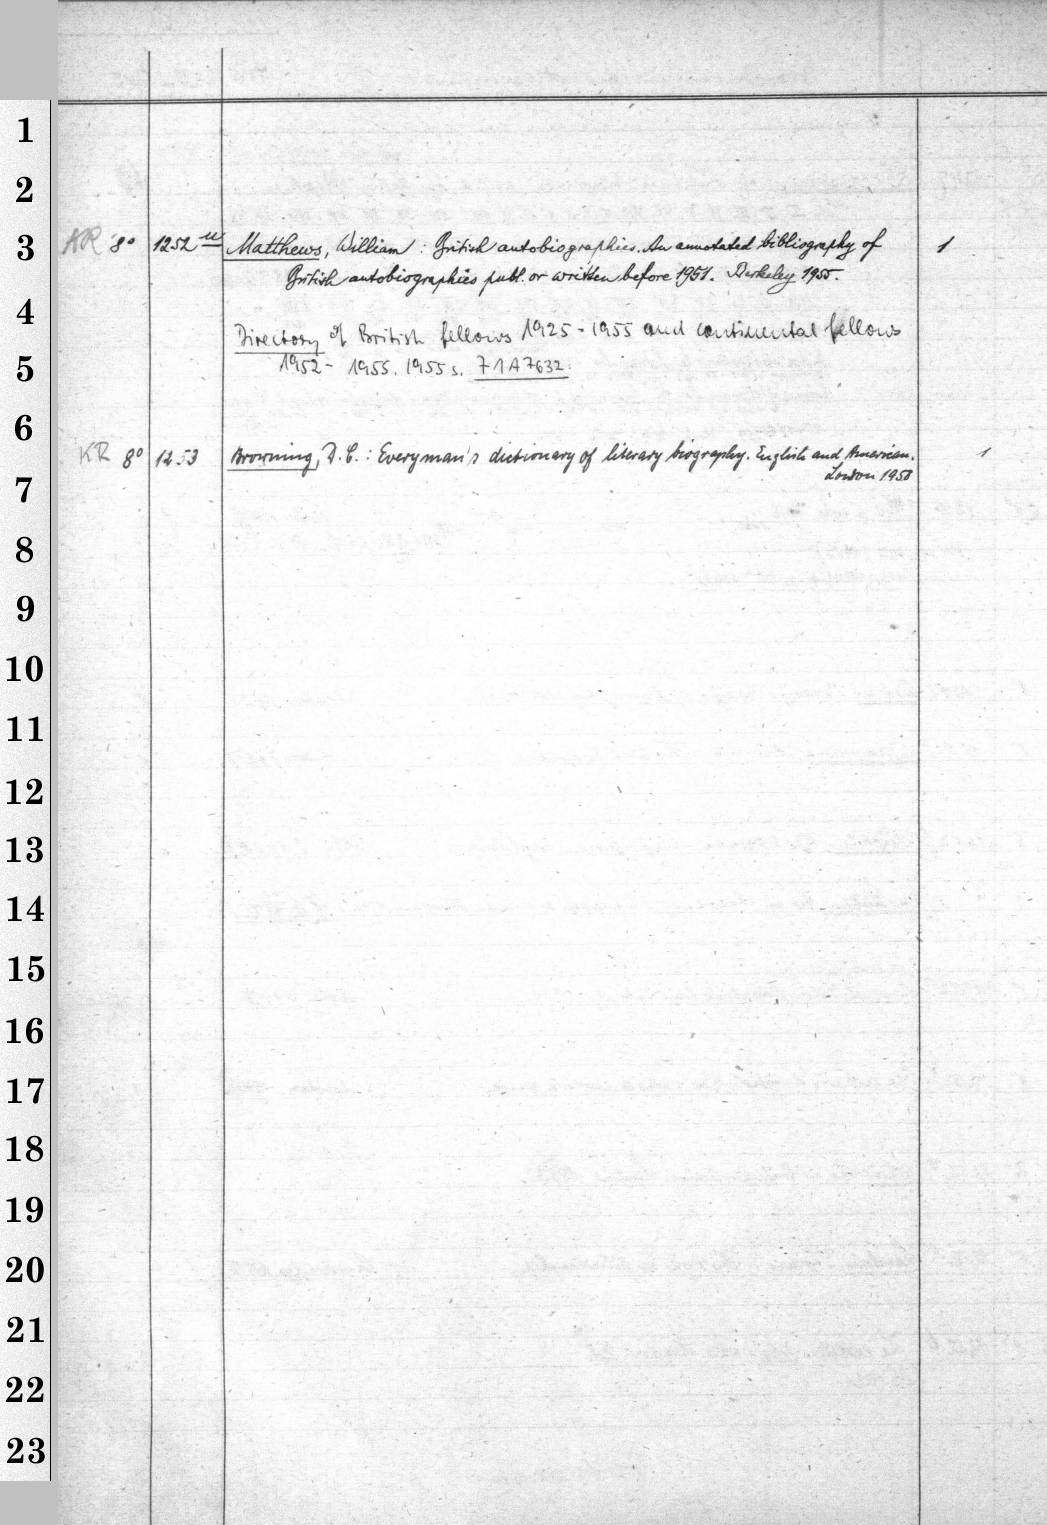 1
2
3
KR 8° 1252 u Matthews, William : British autobiographies. An annotated bibliography of 1
British autobiographies publ. or written before 1951. Berkeley 1955.
4
Directory of British fellows 1925-1955 and continental fellows
5
1952- 1955. 1955 s. 71A7632.
6
KR 8° 1253 Browning, D.C.: Everyman's dictionary of literary biography. English and American. 1
London 1958
7
8
9
10
11
12
13
14
15
16
17
18
19
20
21
22
23